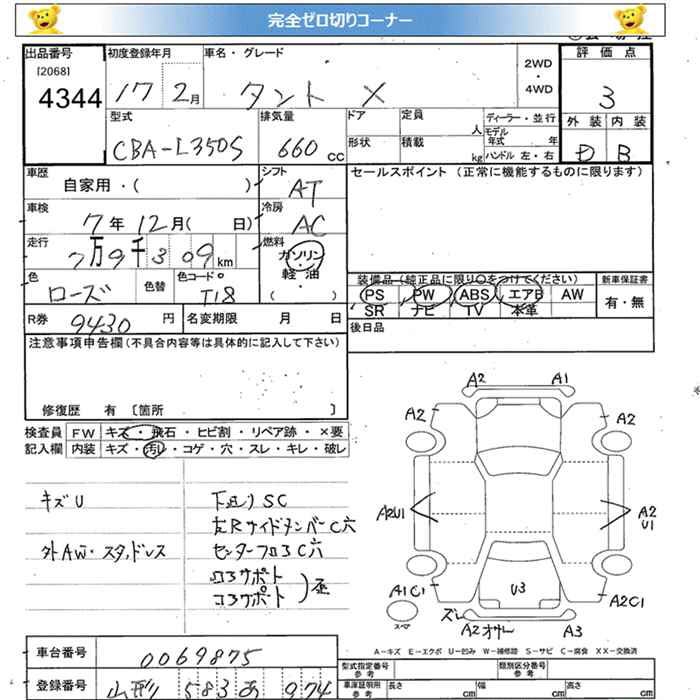 完全ゼロ切りコーナー
出品番号
[2068]
4344
初度登録年月
17 2月
車名・グレード
タント X
2WD
・
4WD
評価点
3
外装 内装
D B
型式
CBA-L350S
排気量
660 cc
ドア
形状
定員
人
積載
kg
ディーラー・並行
モデル年式 年
ハンドル 左・右
車歴
自家用・( )
シフト
AT
車検
7年 12月( 日)
冷房
AC
走行
7万9千309km
燃料
ガソリン
・
軽油
( )
色
ローズ
色替
色コードNo
T18
R券
9430 円
名変期限 月 日
セールスポイント (正常に機能するものに限ります)
装備品(純正品に限り○をつけてください)
PS PW ABS エアB AW
SR ナビ TV 本革
新車保証書
有・無
後日品
注意事項申告欄(不具合内容等は具体的に記入して下さい)
修復歴 有 〔箇所 〕
検査員 FW キズ・飛石・ヒビ割・リペア跡・×要
記入欄 内装 キズ・汚レ・コゲ・穴・スレ・キレ・破レ
キズU
外AW・スタッドレス
下廻りSC
左RサイドメンバーC穴
センターフロアC穴
A2 A1
A2 A2
A2U1
A2
U1
A1C1
U3
A2C1
ズレ
A2 オサレ
A3
A-キズ E-エクボ U-凹み W-補修跡 S-サビ C-腐食 XX-交換済
車台番号
0069875
登録番号
山形 583 あ 974
型式指定番号
参考
類別区分番号
参考
車庫証明用
参考
長さ cm
幅 cm
高さ cm